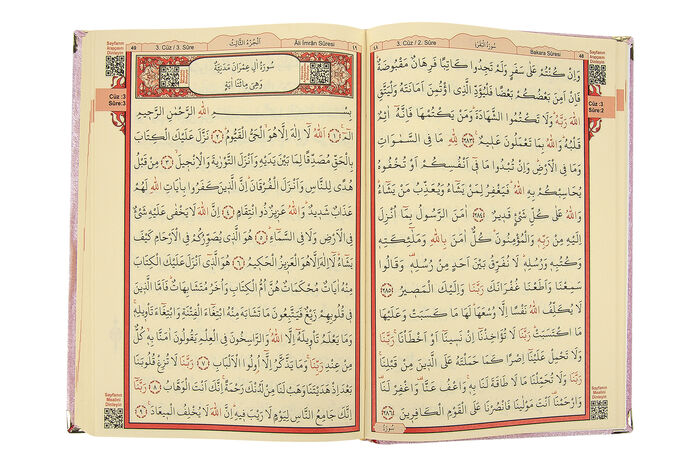 3. Cüz / 2. Sûre
سُورَةُ الْبَقَرَةِ
Bakara Sûresi
48
Sayfanın
Arapçasını
Dinleyin
Cüz :3
Sûre:2
وَاِنْ كُنْتُمْ عَلٰى سَفَرٍ وَلَمْ تَجِدُوا كَاتِبًا فَرِهَانٌ مَقْبُوضَةٌ
فَاِنْ اَمِنَ بَعْضُكُمْ بَعْضًا فَلْيُؤَدِّ الَّذِي اؤْتُمِنَ اَمَانَتَهُ وَلْيَتَّقِ
اللّٰهَ رَبَّهُ وَلَا تَكْتُمُوا الشَّهَادَةَ وَمَنْ يَكْتُمْهَا فَاِنَّهُ اٰثِمٌ
قَلْبُهُ وَاللّٰهُ بِمَا تَعْمَلُونَ عَلِيمٌ ﴿٢٨٣﴾ لِلّٰهِ مَا فِي السَّمٰوَاتِ
وَمَا فِي الْاَرْضِ وَاِنْ تُبْدُوا مَا فِي اَنْفُسِكُمْ اَوْ تُخْفُوهُ
يُحَاسِبْكُمْ بِهِ اللّٰهُ فَيَغْفِرُ لِمَنْ يَشَاءُ وَيُعَذِّبُ مَنْ يَشَاءُ
وَاللّٰهُ عَلٰى كُلِّ شَيْءٍ قَدِيرٌ ﴿٢٨٤﴾ اٰمَنَ الرَّسُولُ بِمَا اُنْزِلَ
اِلَيْهِ مِنْ رَبِّهِ وَالْمُؤْمِنُونَ كُلٌّ اٰمَنَ بِاللّٰهِ وَمَلٰئِكَتِهِ
وَكُتُبِهِ وَرُسُلِهِ لَا نُفَرِّقُ بَيْنَ اَحَدٍ مِنْ رُسُلِهِ وَقَالُوا
سَمِعْنَا وَاَطَعْنَا غُفْرَانَكَ رَبَّنَا وَاِلَيْكَ الْمَصِيرُ ﴿٢٨٥﴾
لَا يُكَلِّفُ اللّٰهُ نَفْسًا اِلَّا وُسْعَهَا لَهَا مَا كَسَبَتْ وَعَلَيْهَا
مَا اكْتَسَبَتْ رَبَّنَا لَا تُؤَاخِذْنَا اِنْ نَسِينَا اَوْ اَخْطَأْنَا رَبَّنَا
وَلَا تَحْمِلْ عَلَيْنَا اِصْرًا كَمَا حَمَلْتَهُ عَلَى الَّذِينَ مِنْ قَبْلِنَا
رَبَّنَا وَلَا تُحَمِّلْنَا مَا لَا طَاقَةَ لَنَا بِهِ وَاعْفُ عَنَّا وَاغْفِرْ لَنَا
وَارْحَمْنَا اَنْتَ مَوْلٰينَا فَانْصُرْنَا عَلَى الْقَوْمِ الْكَافِرِينَ ﴿٢٨٦﴾
سُورَةُ
Sayfanın
Mealini
Dinleyin
49
3. Cüz / 3. Sûre
اَلْجُزْءُ الثَّالِثُ
Âli İmrân Sûresi
٤٩
Sayfanın
Arapçasını
Dinleyin
Cüz :3
Sûre:3
سُورَةُ اٰلِ عِمْرَانَ مَدَنِيَّةٌ
وَهِيَ مِائَتَا اٰيَةٍ
بِسْمِ اللّٰهِ الرَّحْمٰنِ الرَّحِيمِ
الٓمٓ ﴿١﴾ اَللّٰهُ لَا اِلٰهَ اِلَّا هُوَ الْحَيُّ الْقَيُّومُ ﴿٢﴾ نَزَّلَ عَلَيْكَ الْكِتَابَ
بِالْحَقِّ مُصَدِّقًا لِمَا بَيْنَ يَدَيْهِ وَاَنْزَلَ التَّوْرٰيةَ وَالْاِنْجِيلَ ﴿٣﴾ مِنْ قَبْلُ
هُدًى لِلنَّاسِ وَاَنْزَلَ الْفُرْقَانَ اِنَّ الَّذِينَ كَفَرُوا بِاٰيَاتِ اللّٰهِ لَهُمْ
عَذَابٌ شَدِيدٌ وَاللّٰهُ عَزِيزٌ ذُو انْتِقَامٍ ﴿٤﴾ اِنَّ اللّٰهَ لَا يَخْفٰى عَلَيْهِ شَيْءٌ
فِي الْاَرْضِ وَلَا فِي السَّمَاءِ ﴿٥﴾ هُوَ الَّذِي يُصَوِّرُكُمْ فِي الْاَرْحَامِ كَيْفَ
يَشَاءُ لَا اِلٰهَ اِلَّا هُوَ الْعَزِيزُ الْحَكِيمُ ﴿٦﴾ هُوَ الَّذِي اَنْزَلَ عَلَيْكَ الْكِتَابَ
مِنْهُ اٰيَاتٌ مُحْكَمَاتٌ هُنَّ اُمُّ الْكِتَابِ وَاُخَرُ مُتَشَابِهَاتٌ فَاَمَّا الَّذِينَ
فِي قُلُوبِهِمْ زَيْغٌ فَيَتَّبِعُونَ مَا تَشَابَهَ مِنْهُ ابْتِغَاءَ الْفِتْنَةِ وَابْتِغَاءَ تَأْوِيلِهِ
وَمَا يَعْلَمُ تَأْوِيلَهُ اِلَّا اللّٰهُ وَالرَّاسِخُونَ فِي الْعِلْمِ يَقُولُونَ اٰمَنَّا بِهِ كُلٌّ
مِنْ عِنْدِ رَبِّنَا وَمَا يَذَّكَّرُ اِلَّا اُولُوا الْاَلْبَابِ ﴿٧﴾ رَبَّنَا لَا تُزِغْ قُلُوبَنَا
بَعْدَ اِذْ هَدَيْتَنَا وَهَبْ لَنَا مِنْ لَدُنْكَ رَحْمَةً اِنَّكَ اَنْتَ الْوَهَّابُ ﴿٨﴾ رَبَّنَا
اِنَّكَ جَامِعُ النَّاسِ لِيَوْمٍ لَا رَيْبَ فِيهِ اِنَّ اللّٰهَ لَا يُخْلِفُ الْمِيعَادَ ﴿٩﴾
Sayfanın
Mealini
Dinleyin